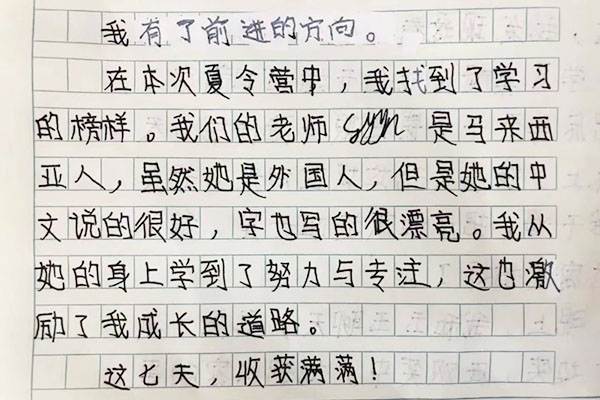 我有了前进的方向。
在本次夏令营中，我找到了学习
的榜样。我们的老师 syyn 是马来西
亚人，虽然她是外国人，但是她的中
文说的很好，字也写的很漂亮。我从
她的身上学到了努力与专注，这也激
励了我成长的道路。
这七天，收获满满！